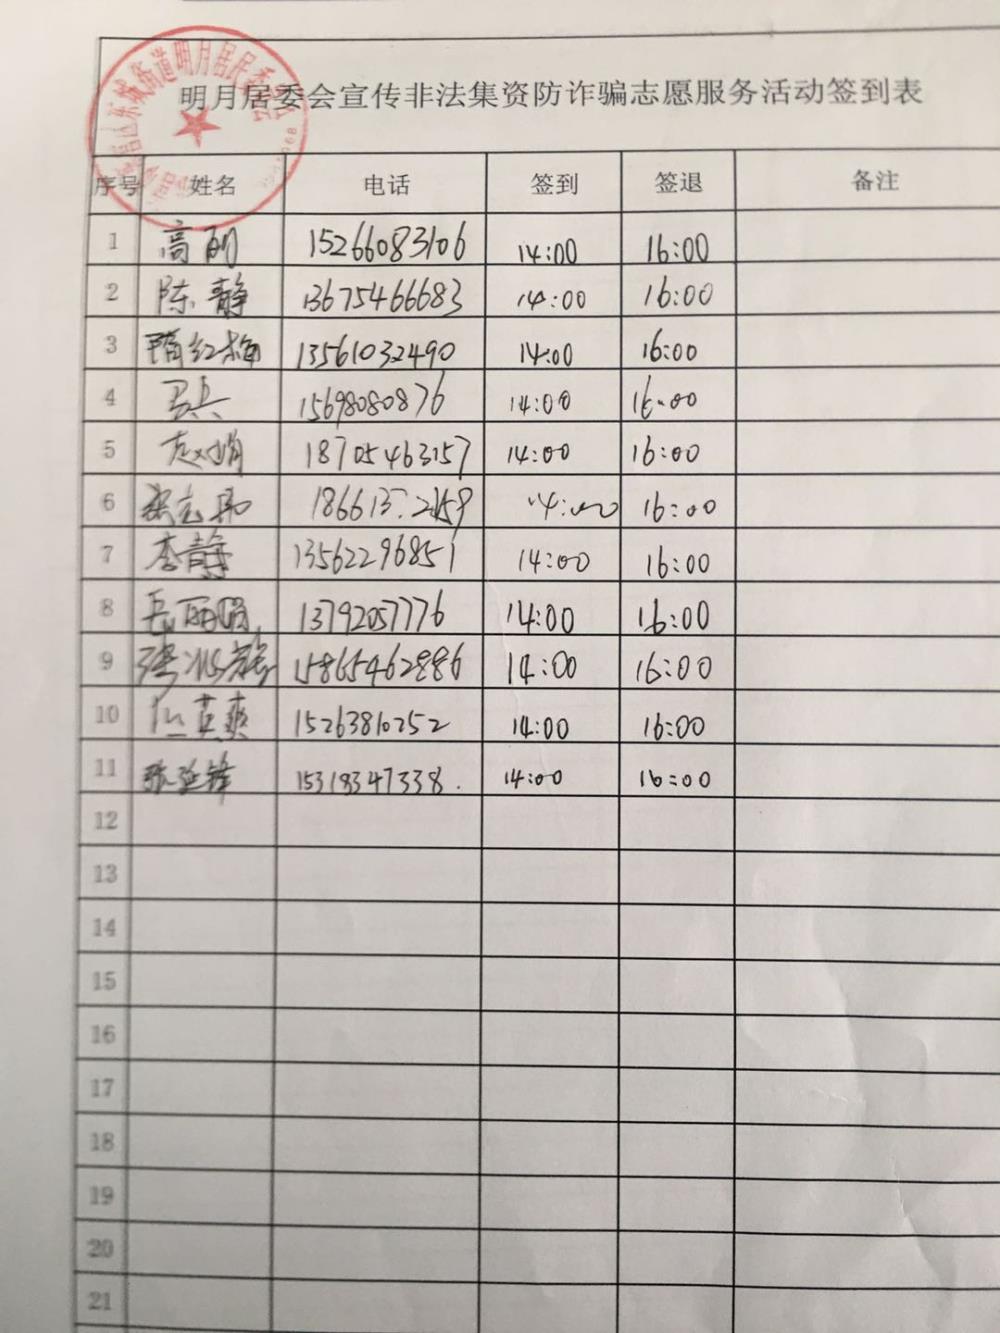 明月居委会宣传非法集资防诈骗志愿服务活动签到表
序号 姓名 电话 签到 签退 备注
1 高 15266083106 14:00 16:00
2 陈静 13675466683 14:00 16:00
3 隋红梅 13561032490 14:00 16:00
4 15698080876 14:00 16:00
5 赵娟 18705463157 14:00 16:00
6 16:00
7 李静 13562296851 14:00 16:00
8 岳丽娟 13792057776 14:00 16:00
9 15865462886 14:00 16:00
10 任英爽 15263810252 14:00 16:00
11 张延锋 15319347338 14:00 16:00
12
13
14
15
16
17
18
19
20
21